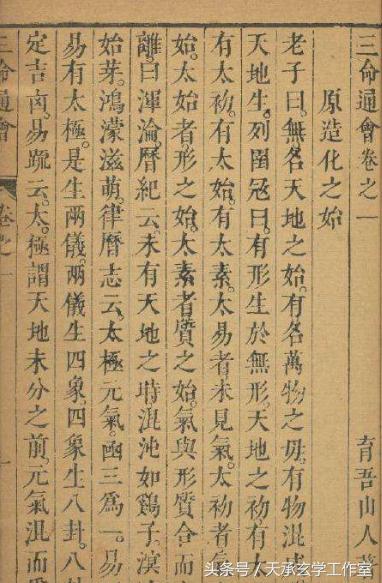 三命通會卷之一
育吾山人著
原造化之始
老子曰。無名天地之始。有名萬物之母。有物混成
天地生。列圄冦曰。有形生於無形。天地之初有太
有太初。有太始。有太素。太易者未見氣。太初者
始。太始者形之始。太素者質之始。氣與形質合而
離。曰渾淪。曆紀云。未有天地之時混沌如鷄子。溟
始芽。鴻濛滋萌。律曆志云。太極元氣函三為一。易
易有太極。是生兩儀。兩儀生四象。四象生八卦。八
定吉凶。易䟽云。太極謂天地未分之前。元氣混而
三命通會
卷之一
一
头条号/天承玄学工作室